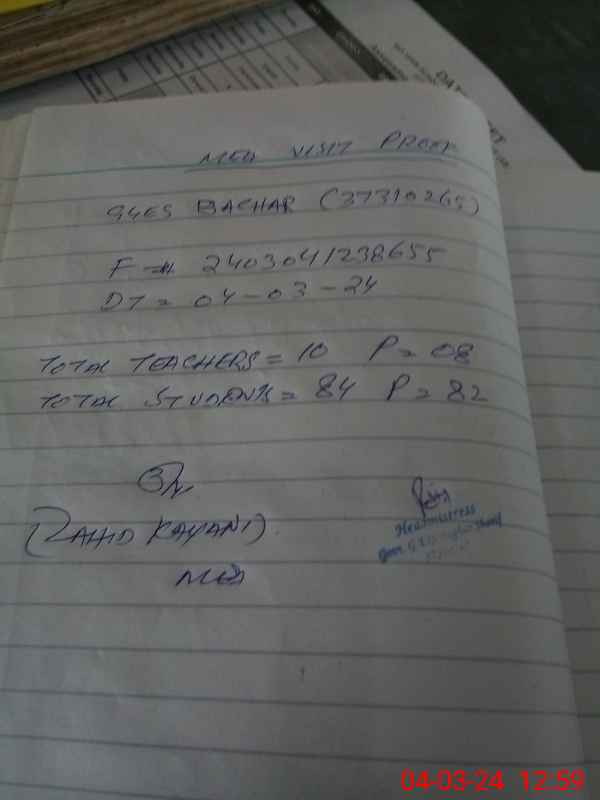 MEA VISIT PROOF
GGES BACHAR (37310265)
F = 2403041238655
DT = 04-03-24
TOTAL TEACHERS = 10 P = 08
TOTAL STUDENTS = 84 P = 82
(ZAHID KAYANI)
MEA
Headmistress
Govt. G.E.S
04-03-24 12:59